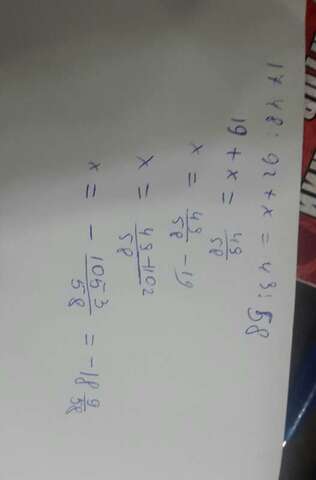 1748 : 92 + x = 49 : 58
19 + x = 49/58
x = 49/58 - 19
x = 49-1102/58
x = - 1053/58 = -18 9/58